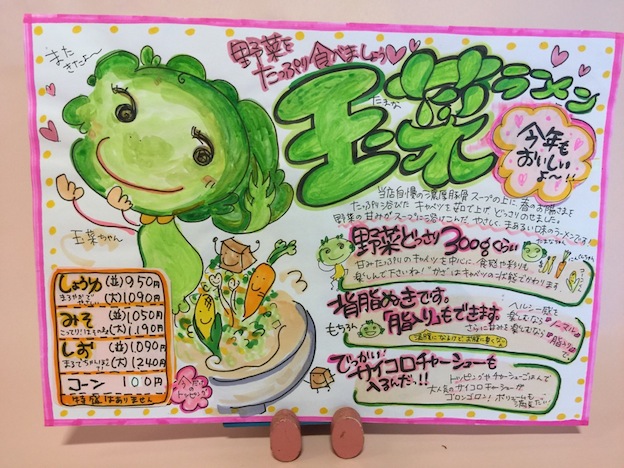 また
きたよ〜
野菜を
たっぷり食べましょう
玉菜ラーメン
たまな
今年も
おいしい
よ〜!!
玉菜ちゃん
当店自慢の濃厚豚骨スープの上に春のお陽さまを
たっぷり浴びたキャベツを茹で上げどっさりのせました。
野菜の甘みがスープに溶けこんで、やさしく、まあるい味のラーメンです!
野菜どっさり300gくらい
甘みたっぷりのキャベツを中心に、食感や彩りも
楽しんで下さいね!
背脂ぬきです。
もちろん「脂入り」もできます。
ヘルシー感を
楽しむなら
ノーマル
さらに甘みを楽しむなら
脂入り
でっかいサイコロチャーシューも
入るんだ、!!
トッピングやチャーシューごはんで
大人気のサイコロチャーシューが
ゴロンゴロン!ボリュームも
満点だい!
しょうゆ (並)950円
(大)1,090円
みそ (並)1,050円
(大)1,190円
しお (並)1,090円
(大)1,240円
コーン 100円
特盛はありません
今年の
トッピング